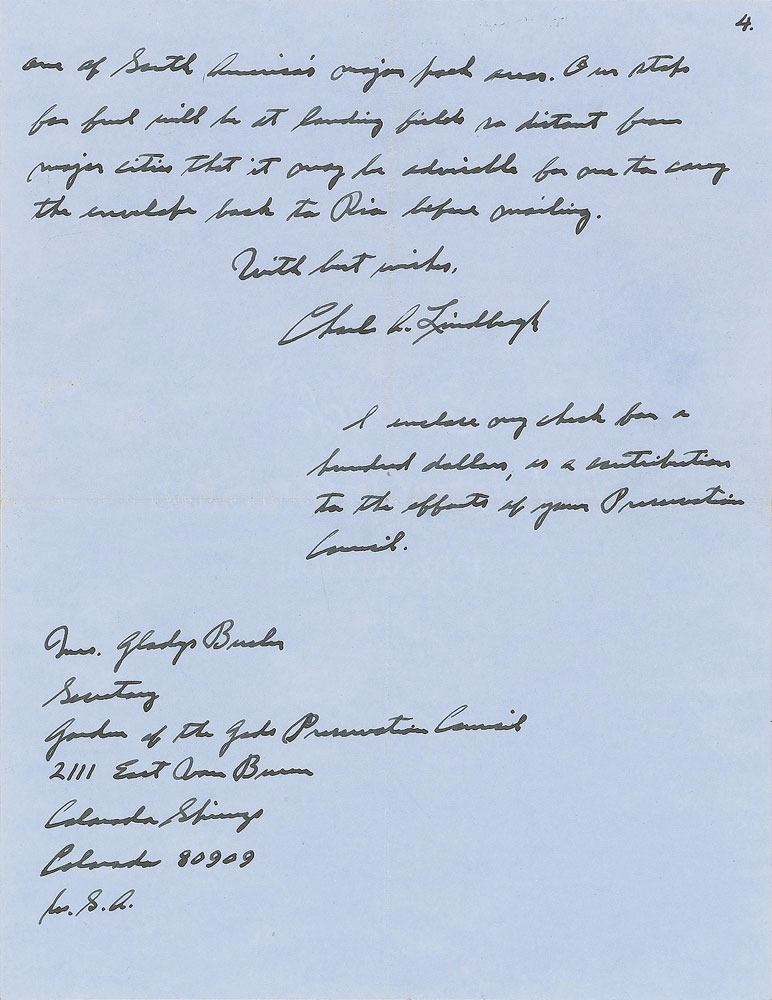 4.
one of South America's major park areas. Our stops
for fuel will be at landing fields so distant from
major cities that it may be advisable for me to carry
the envelope back to Rio before mailing.
With best wishes,
Charles A. Lindbergh
I enclose my check for a
hundred dollars, as a contribution
to the efforts of your Preservation
Council.
Mrs. Gladys
Secretary
Garden of the Gods Preservation Council
2111 East Van Buren
Colorado Springs
Colorado 80909
U. S. A.